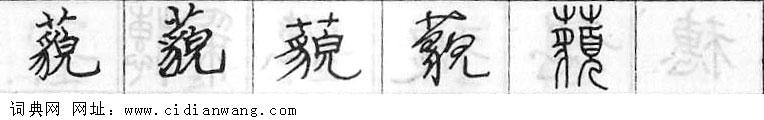 藐 藐 藐 藐 藐
词典网 网址：www.cidianwang.com